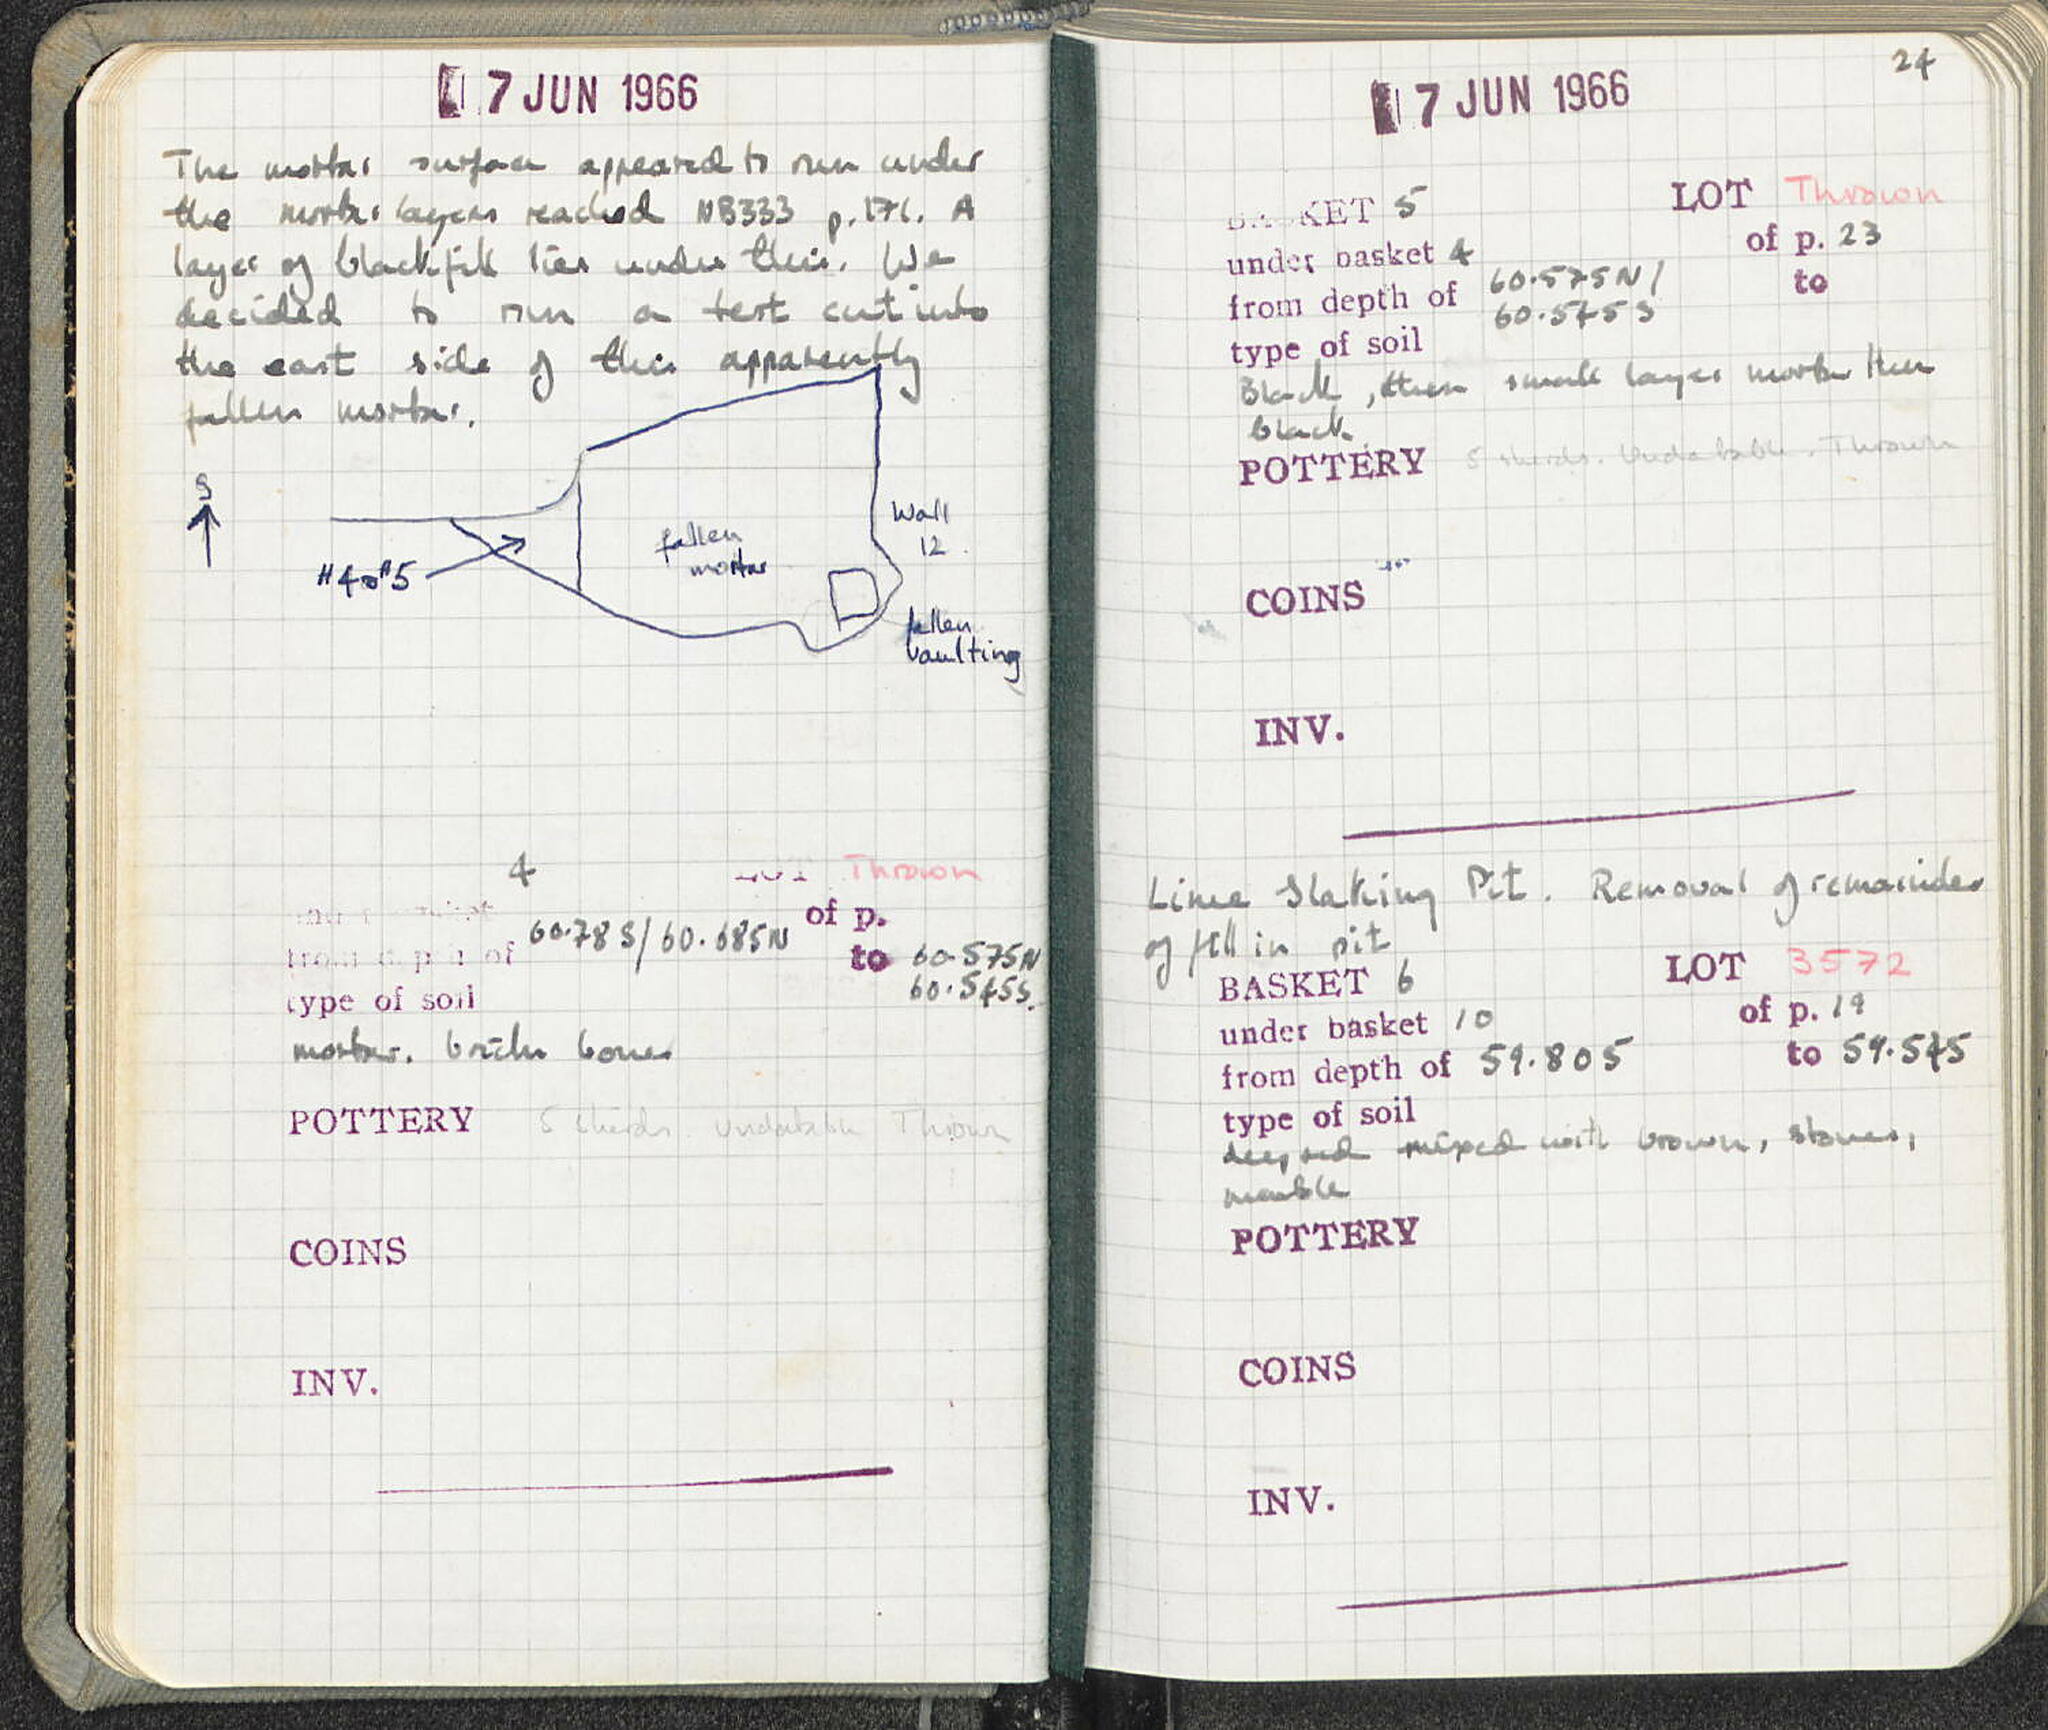 7 JUN 1966
The mortar surface appeared to run under
the mortar layers reached NB333 p.171. A
layer of black fill lies under this. We
decided to run a test cut into
the east side of this apparently
fallen mortar.
S
#4 #5
fallen
mortar
Wall
12
fallen
vaulting
4
LOT Thrown
of p.
from depth of 60.78 S/ 60.685N
to 60.575N
60.545S.
type of soil
mortar. bricks bones
POTTERY 5 sherds. Undatable Thrown
COINS
INV.
24
7 JUN 1966
BASKET 5
LOT Thrown
under basket 4
of p. 23
from depth of 60.575N/
60.545S
to
type of soil
Black, then small layer mortar then
black.
POTTERY 5 sherds. Undatable. Thrown
COINS
INV.
Lime Slaking Pit. Removal of remainder
of fill in pit
BASKET 6
LOT 3572
under basket 10
of p. 19
from depth of 59.805
to 59.545
type of soil
deep red mixed with brown, stones,
marble
POTTERY
COINS
INV.